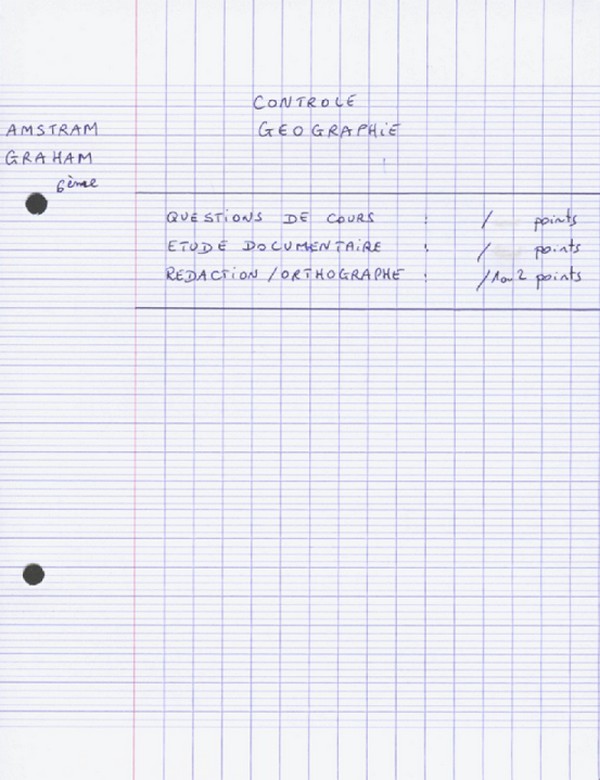 CONTROLE
GEOGRAPHiE
AMSTRAM
GRAHAM
6ème
QUESTiONS DE COURS : / points
ETUDE DOCUMENTAiRE : / points
REDACTiON / ORTHOGRAPHE : /1 ou 2 points